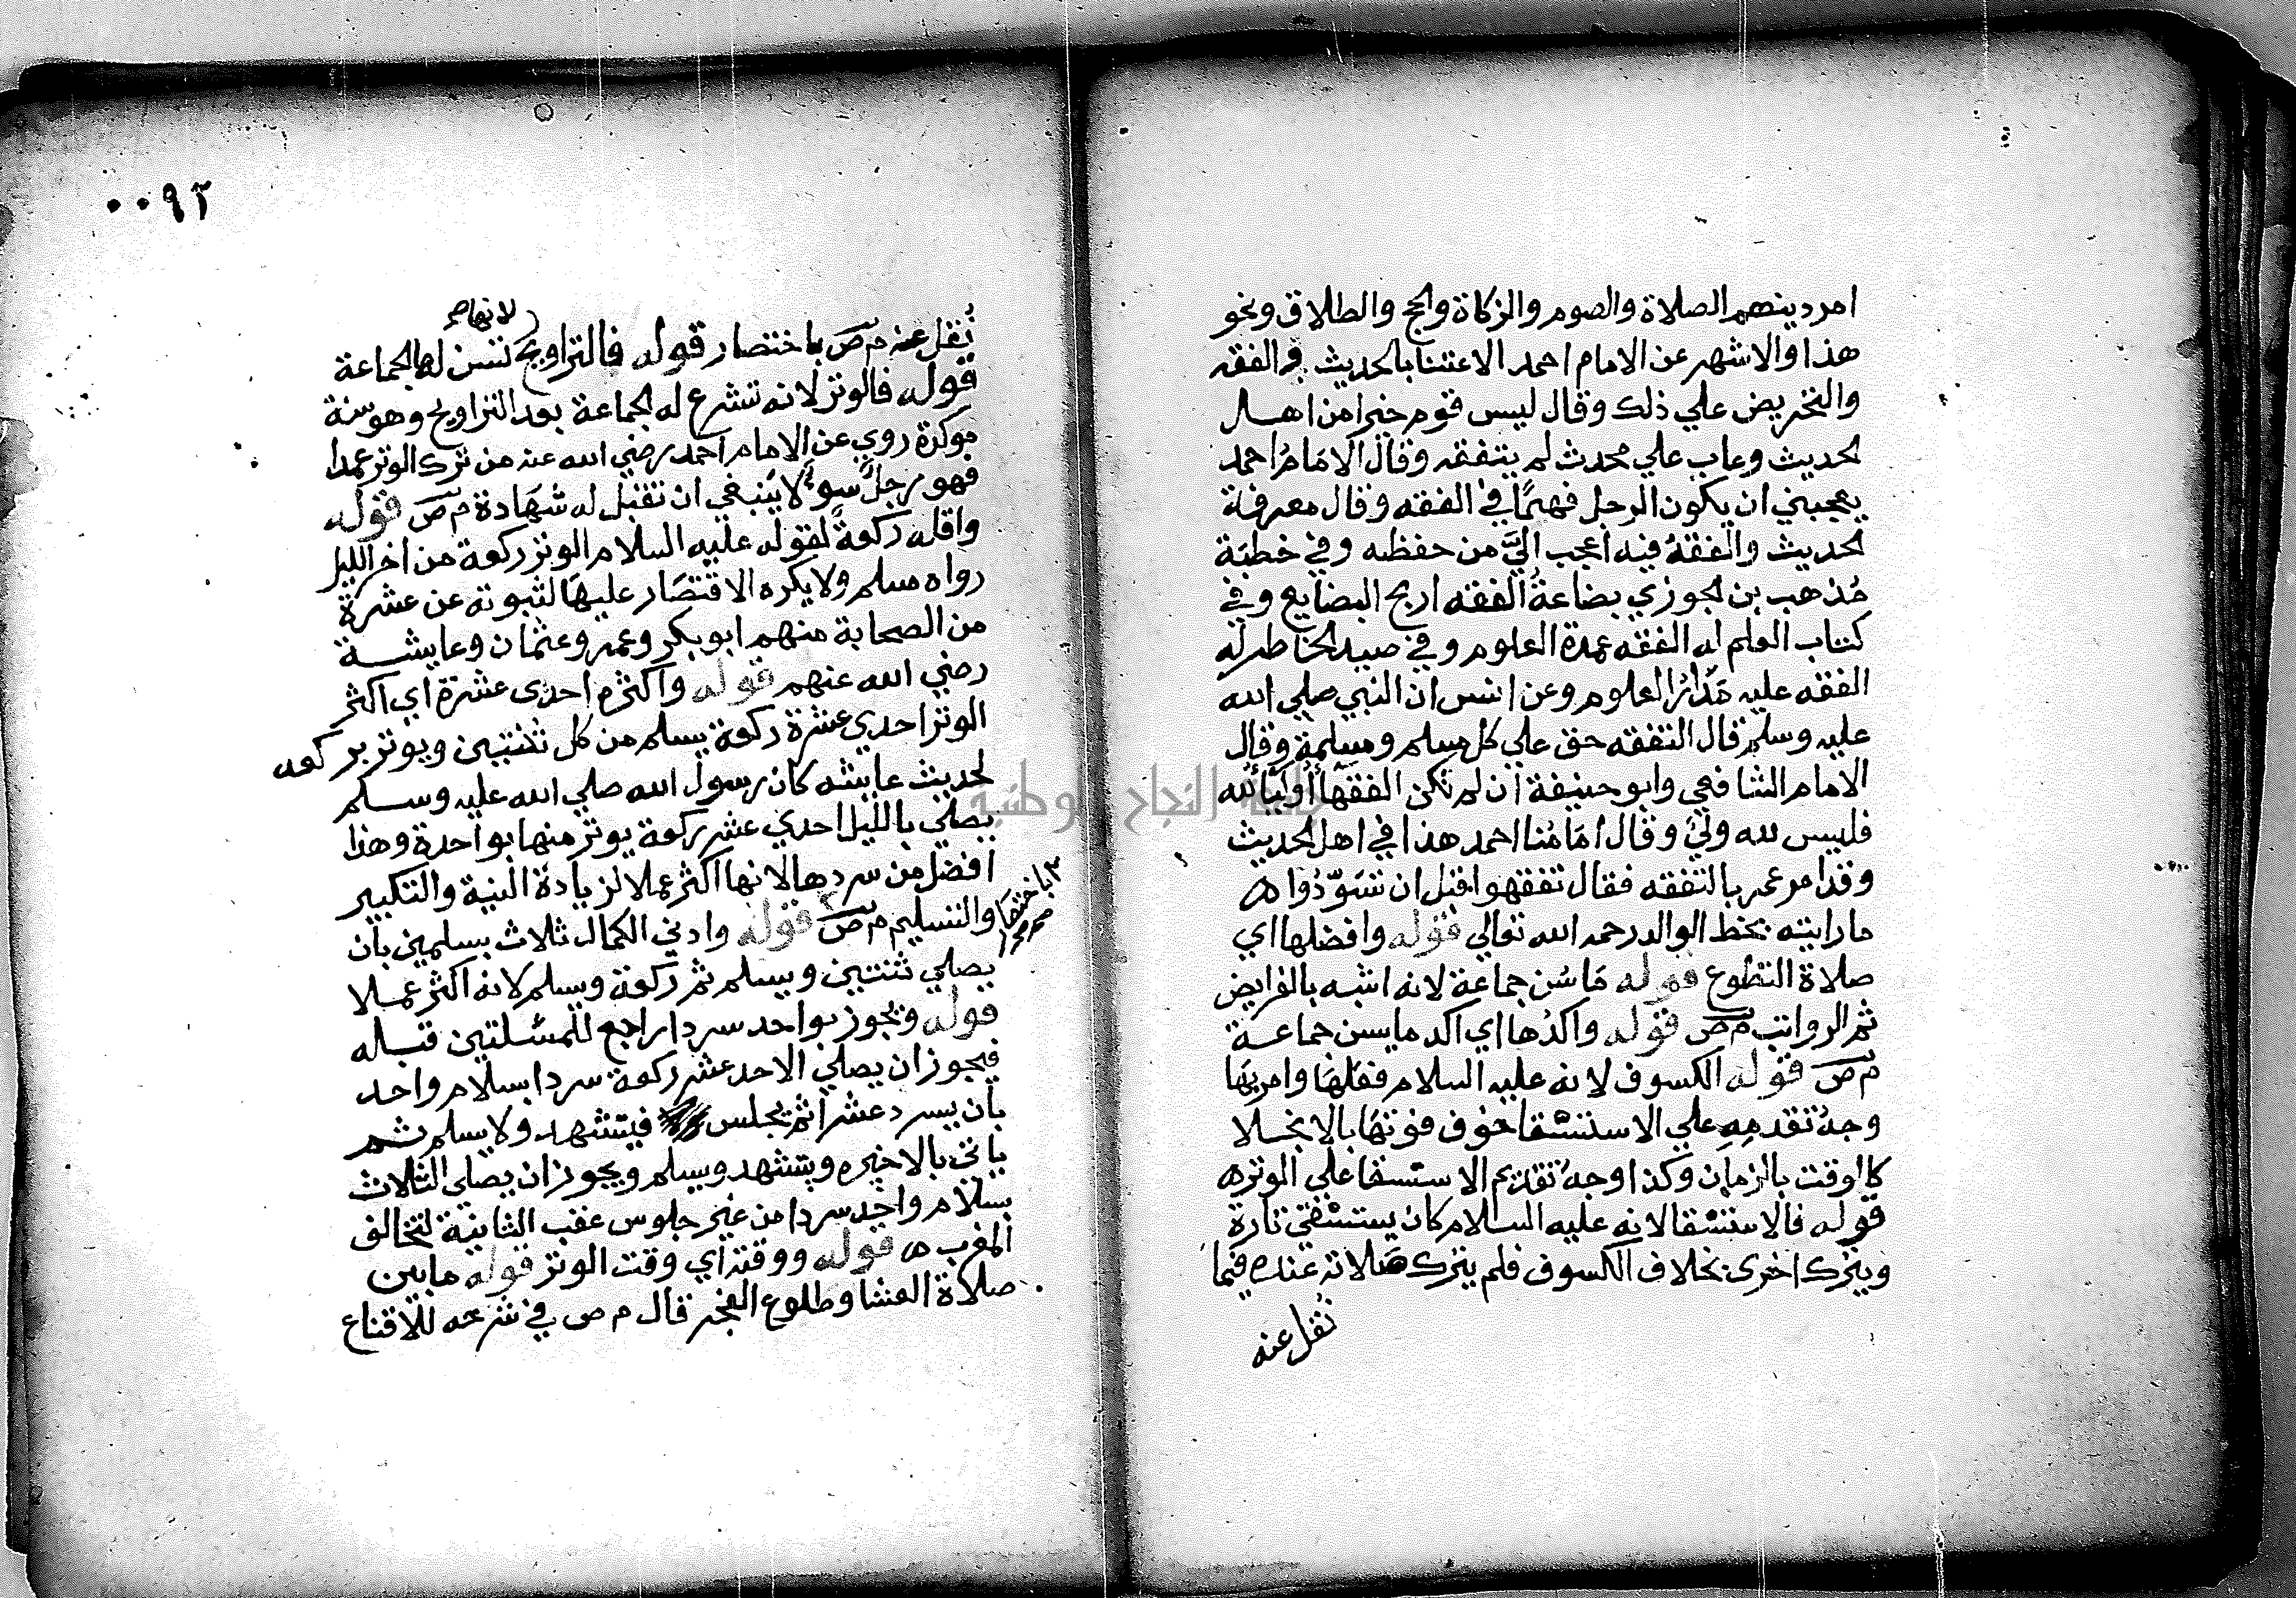 امر دينهم الصلاة والصوم والزكاة والحج والطلاق ونحو
هذا والاشهر عن الامام احمد الاعتنا بالحديث والفقه
والتحريض علي ذلك وقال ليس قوم خيرا من اهل
الحديث وعاب علي محدث لم يتفقه وقال الامَامُ احمد
يعجبني ان يكون الرجل فهمًا في الفقه وقال معرفة
الحديث والفقهُ فيه اعجب اليَّ من حفظه وفي خطبة
مُذهب بن الجوزي بضاعةُ الفقه اربح البضايع وفي
كتاب العلم له الفقه عمدة العلوم وفي صيد الخاطر له
الفقه عليه مَدَارُ العلوم وعن انس ان النبي صلي الله
عليه وسلم قال التفقه حق علي كل مسلم ومسلمة وقال
الامام الشافعي وابو حنيفة ان لم تكن الفقهاُ اوليَاُ لله
فليس لله وليٌ وقال امَامُنا احمد هذا في اهل الحديث
وقد امر عمر بالتفقه فقال تفقهوا قبل ان تسَوّدُوا ه
ما رايته بخط الوالد رحمه الله تعالي قوله وافضلها اي
صلاة التطوع قوله مَا سُن جماعة لانه اشبه بالفرايض
ثم الرواتب م ص قوله واكدُها اي اكد ما يسن جماعة
م ص قوله الكسوف لانه عليه السلام فعَلهَا وامر بهَا
وجهُ تقدمِهِ علي الاستسقا خوف فوتهَا بالانجلا
كالوقت بالزمان وكذا وجهُ تقديم الاستسقا علي الوتر ه
قوله فالاستسقا لانه عليه السلام كان يستسقي تارة
ويترك اخرى بخلاف الكسوف فلم يترك صَلاته عنده فيما
نُقل عنه
٠٠٩٢
نُقل عنه م ص باختصار قوله فالتراويح تسن لها الجماعة
لانها
قوله فالوتر لانه تشرع له الجماعة بعد التراويح وهو سنة
موكدة روي عن الامام احمد رضي الله عنه من ترك الوتر عمدا
فهو رجلٌ سوءٌ لا يَنبغي ان تقبل له شهَادة م ص قوله
واقله ركعةً لقوله عليه السلام الوتر ركعة من اخر الليل
رواه مسلم ولا يكره الاقتصَار عليهَا لثبوته عن عشرة
من الصحابة منهم ابو بكر وعمر وعثمان وعايشة
رضي الله عنهم قوله واكثره احدى عشرة اي اكثر
الوتر احدي عشرة ركعة يسلم من كل ثنتين ويوتر بركعه
لحديث عايشه كان رسول الله صلي الله عليه وسلم
يصلي بالليل احدي عشر ركعة يوتر منها بواحدة وهذا
افضل من سردها لانها اكثر عملا لزيادة النية والتكبير
والتسليم م ص قوله وادني الكمال ثلاث بسلمين بان
يصلي ثنتين ويسلم ثم ركعة ويسلم لانه اكثر عملا
قوله ويجوز بواحد سردا راجع للمسُلتين قبله
فيجوز ان يصلي الاحد عشر ركعة سردا بسلام واحد
بان يسرد عشرا ثم يجلس فيتشهد ولا يسلم ثم
ياتي بالاخيره ويتشهد ويسلم ويجوز ان يصلي الثلاث
بسلام واحد سردا من غير جلوس عقب الثانية لتخالف
المغرب ه قوله ووقته اي وقت الوتر قوله ما بين
صلاة العشا وطلوع الفجر قال م ص في شرحه للاقناع
جامعة النجاح الوطنية